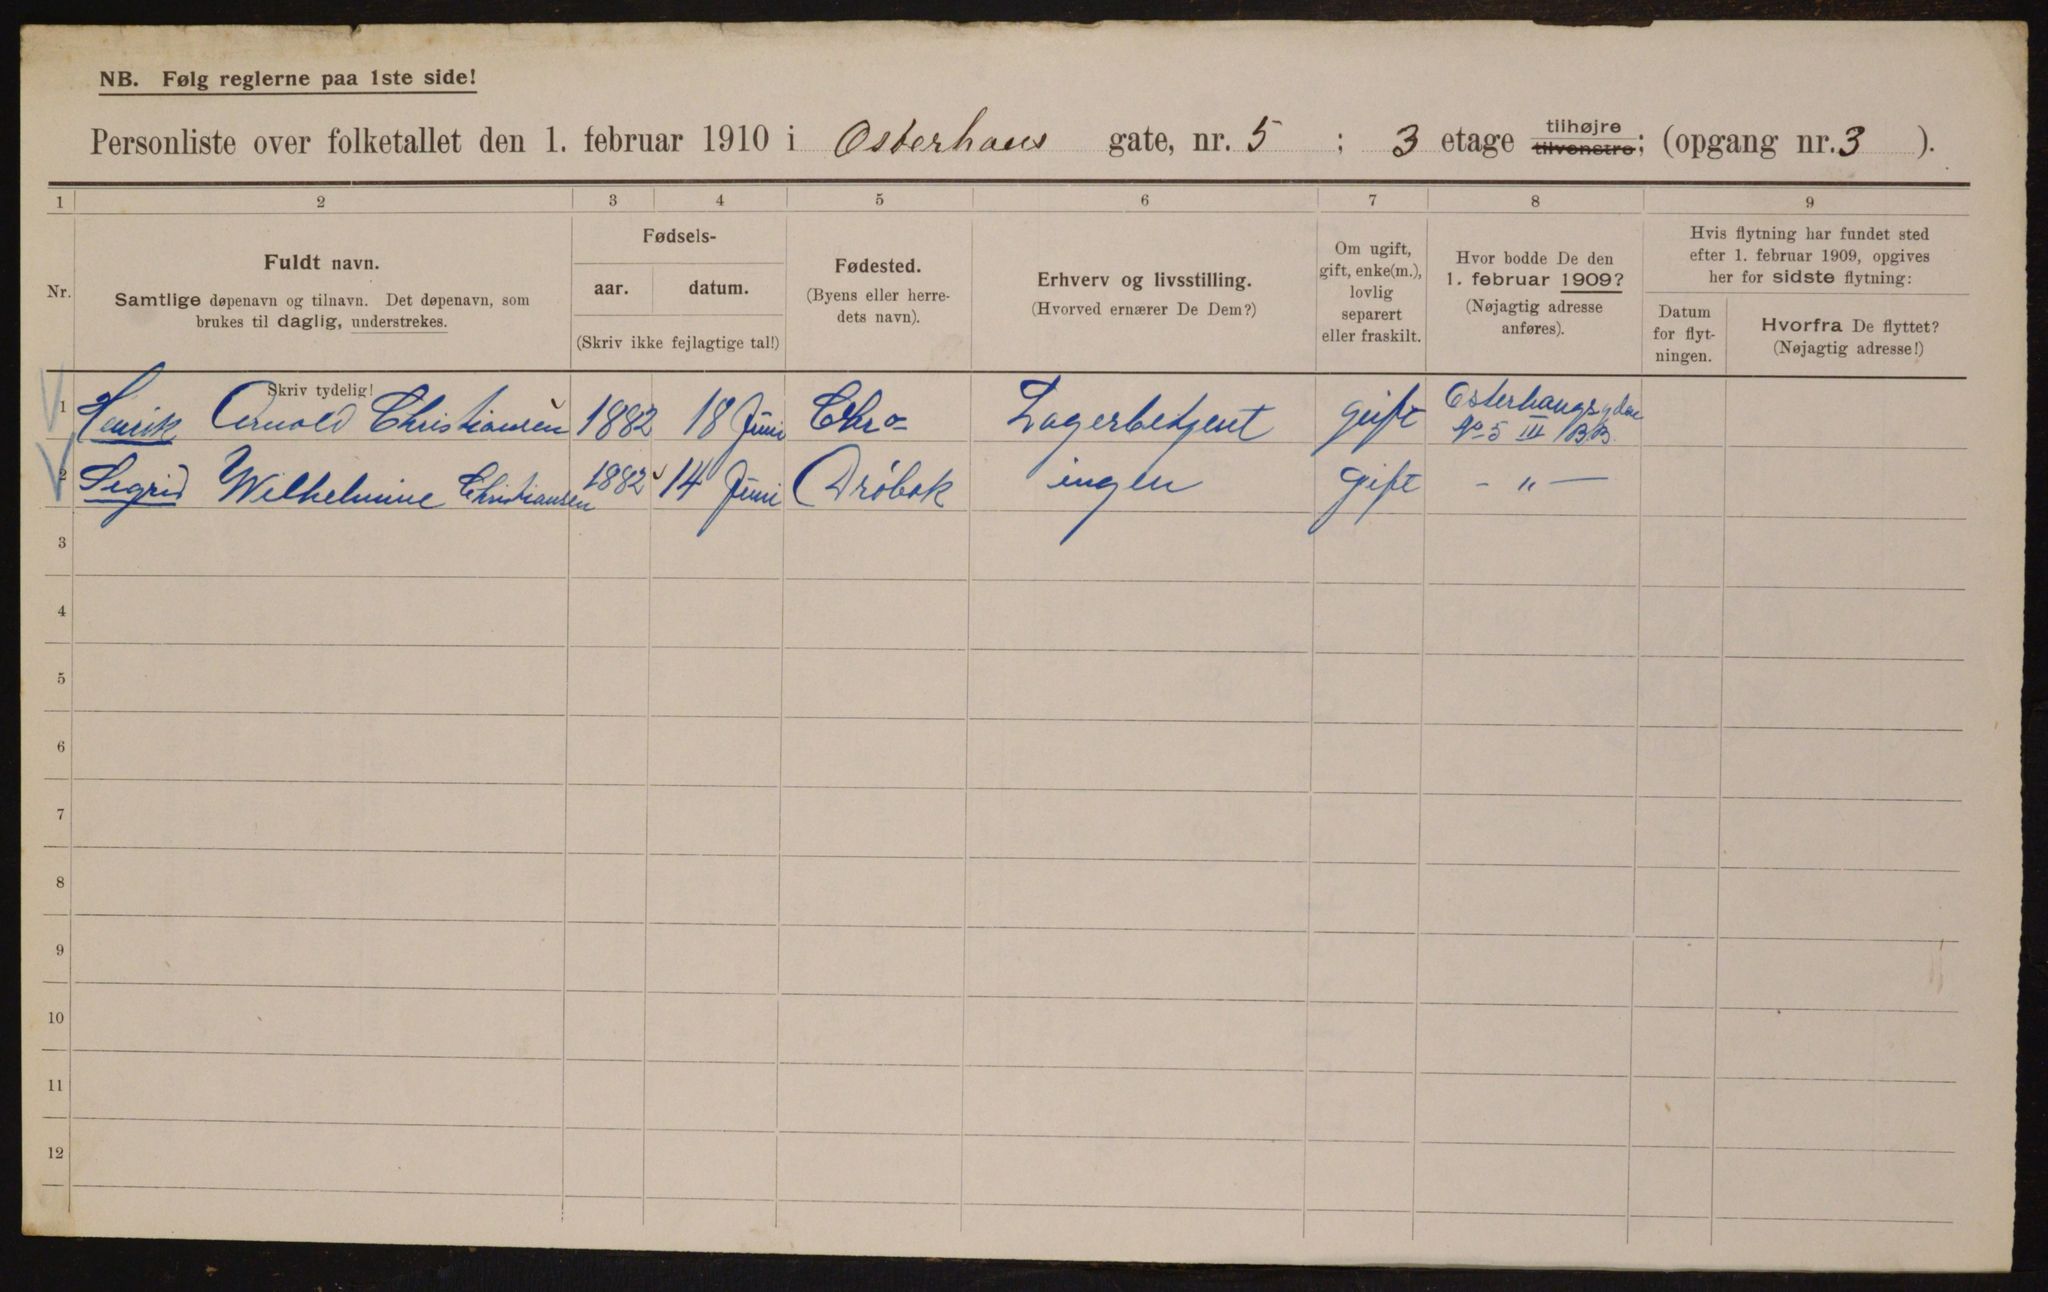 NB. Følg reglerne paa 1ste side!
Personliste over folketallet den 1. februar 1910 i Osterhaus gate, nr. 5 ; 3 etage tilhøjre tilvenstre; (opgang nr. 3 ).
1 2 3 4 5 6 7 8 9
Nr.
Fuldt navn.
Samtlige døpenavn og tilnavn. Det døpenavn, som
brukes til daglig, understrekes.
Fødsels-
aar. datum.
(Skriv ikke fejlagtige tal!)
Fødested.
(Byens eller herre-
dets navn).
Erhverv og livsstilling.
(Hvorved ernærer De Dem?)
Om ugift,
gift, enke(m.),
lovlig
separert
eller fraskilt.
Hvor bodde De den
1. februar 1909?
(Nøjagtig adresse
anføres).
Hvis flytning har fundet sted
efter 1. februar 1909, opgives
her for sidste flytning:
Datum
for flyt-
ningen.
Hvorfra De flyttet?
(Nøjagtig adresse!)
Skriv tydelig!
1 Henrik Arnold Christiansen 1882 18 Juni Chra Lagerbetjent gift Osterhausgden
No 5 III
2 Sigrid Wilhelmine Christiansen 1882 14 Juni Drøbak ingen gift - " -
3
4
5
6
7
8
9
10
11
12